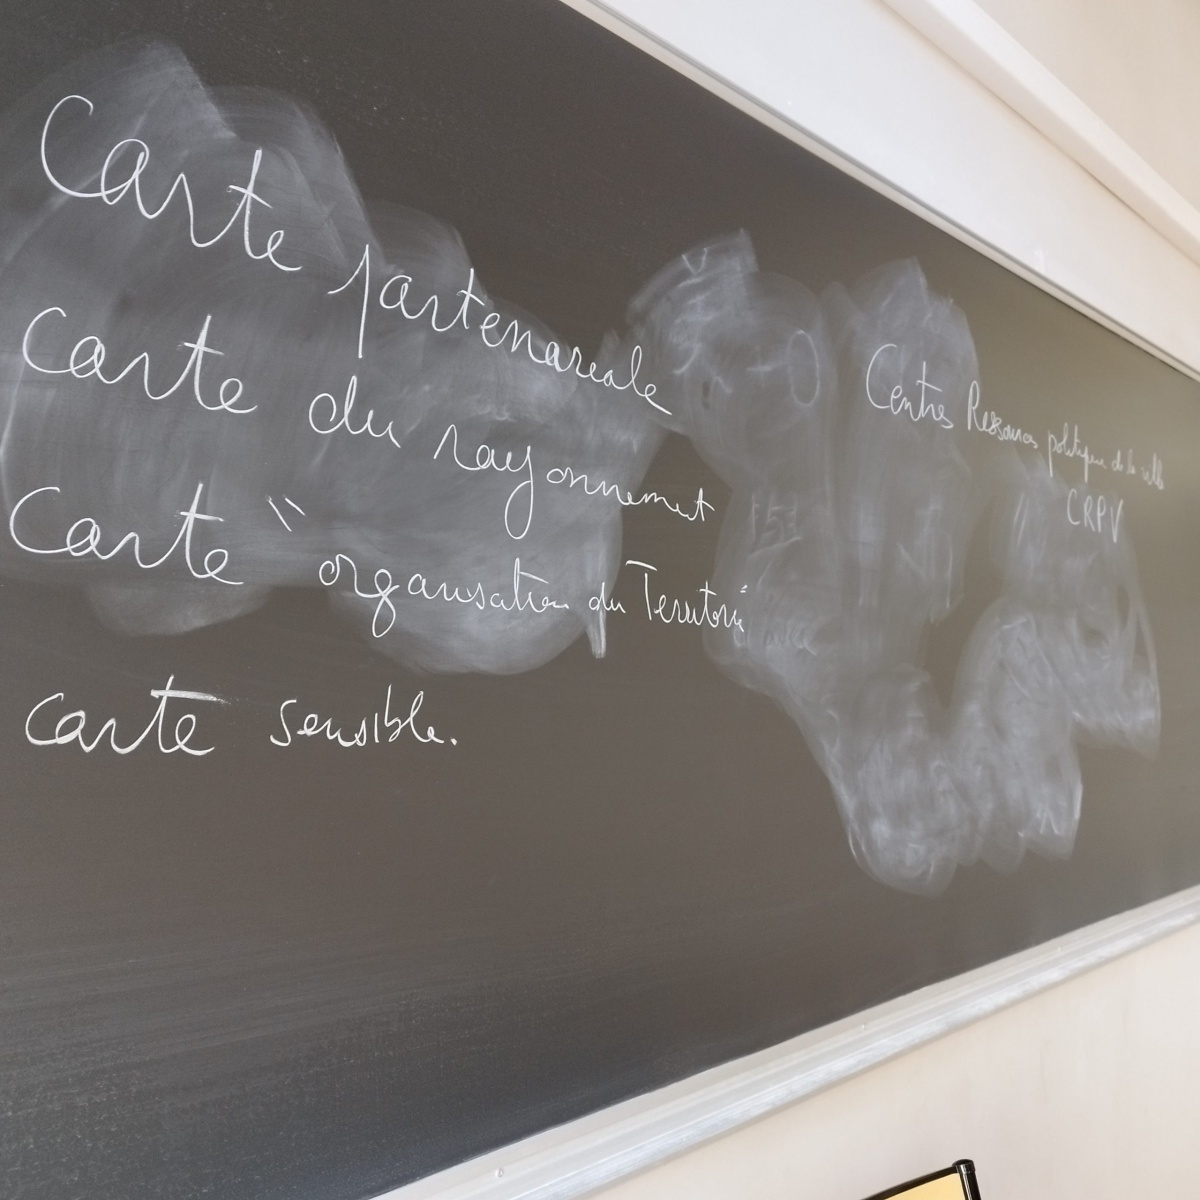 Carte partenariale
Carte du rayonnement
Carte " organisation du Territoire"
carte sensible.
Centres Ressources politique de la ville
CRPV